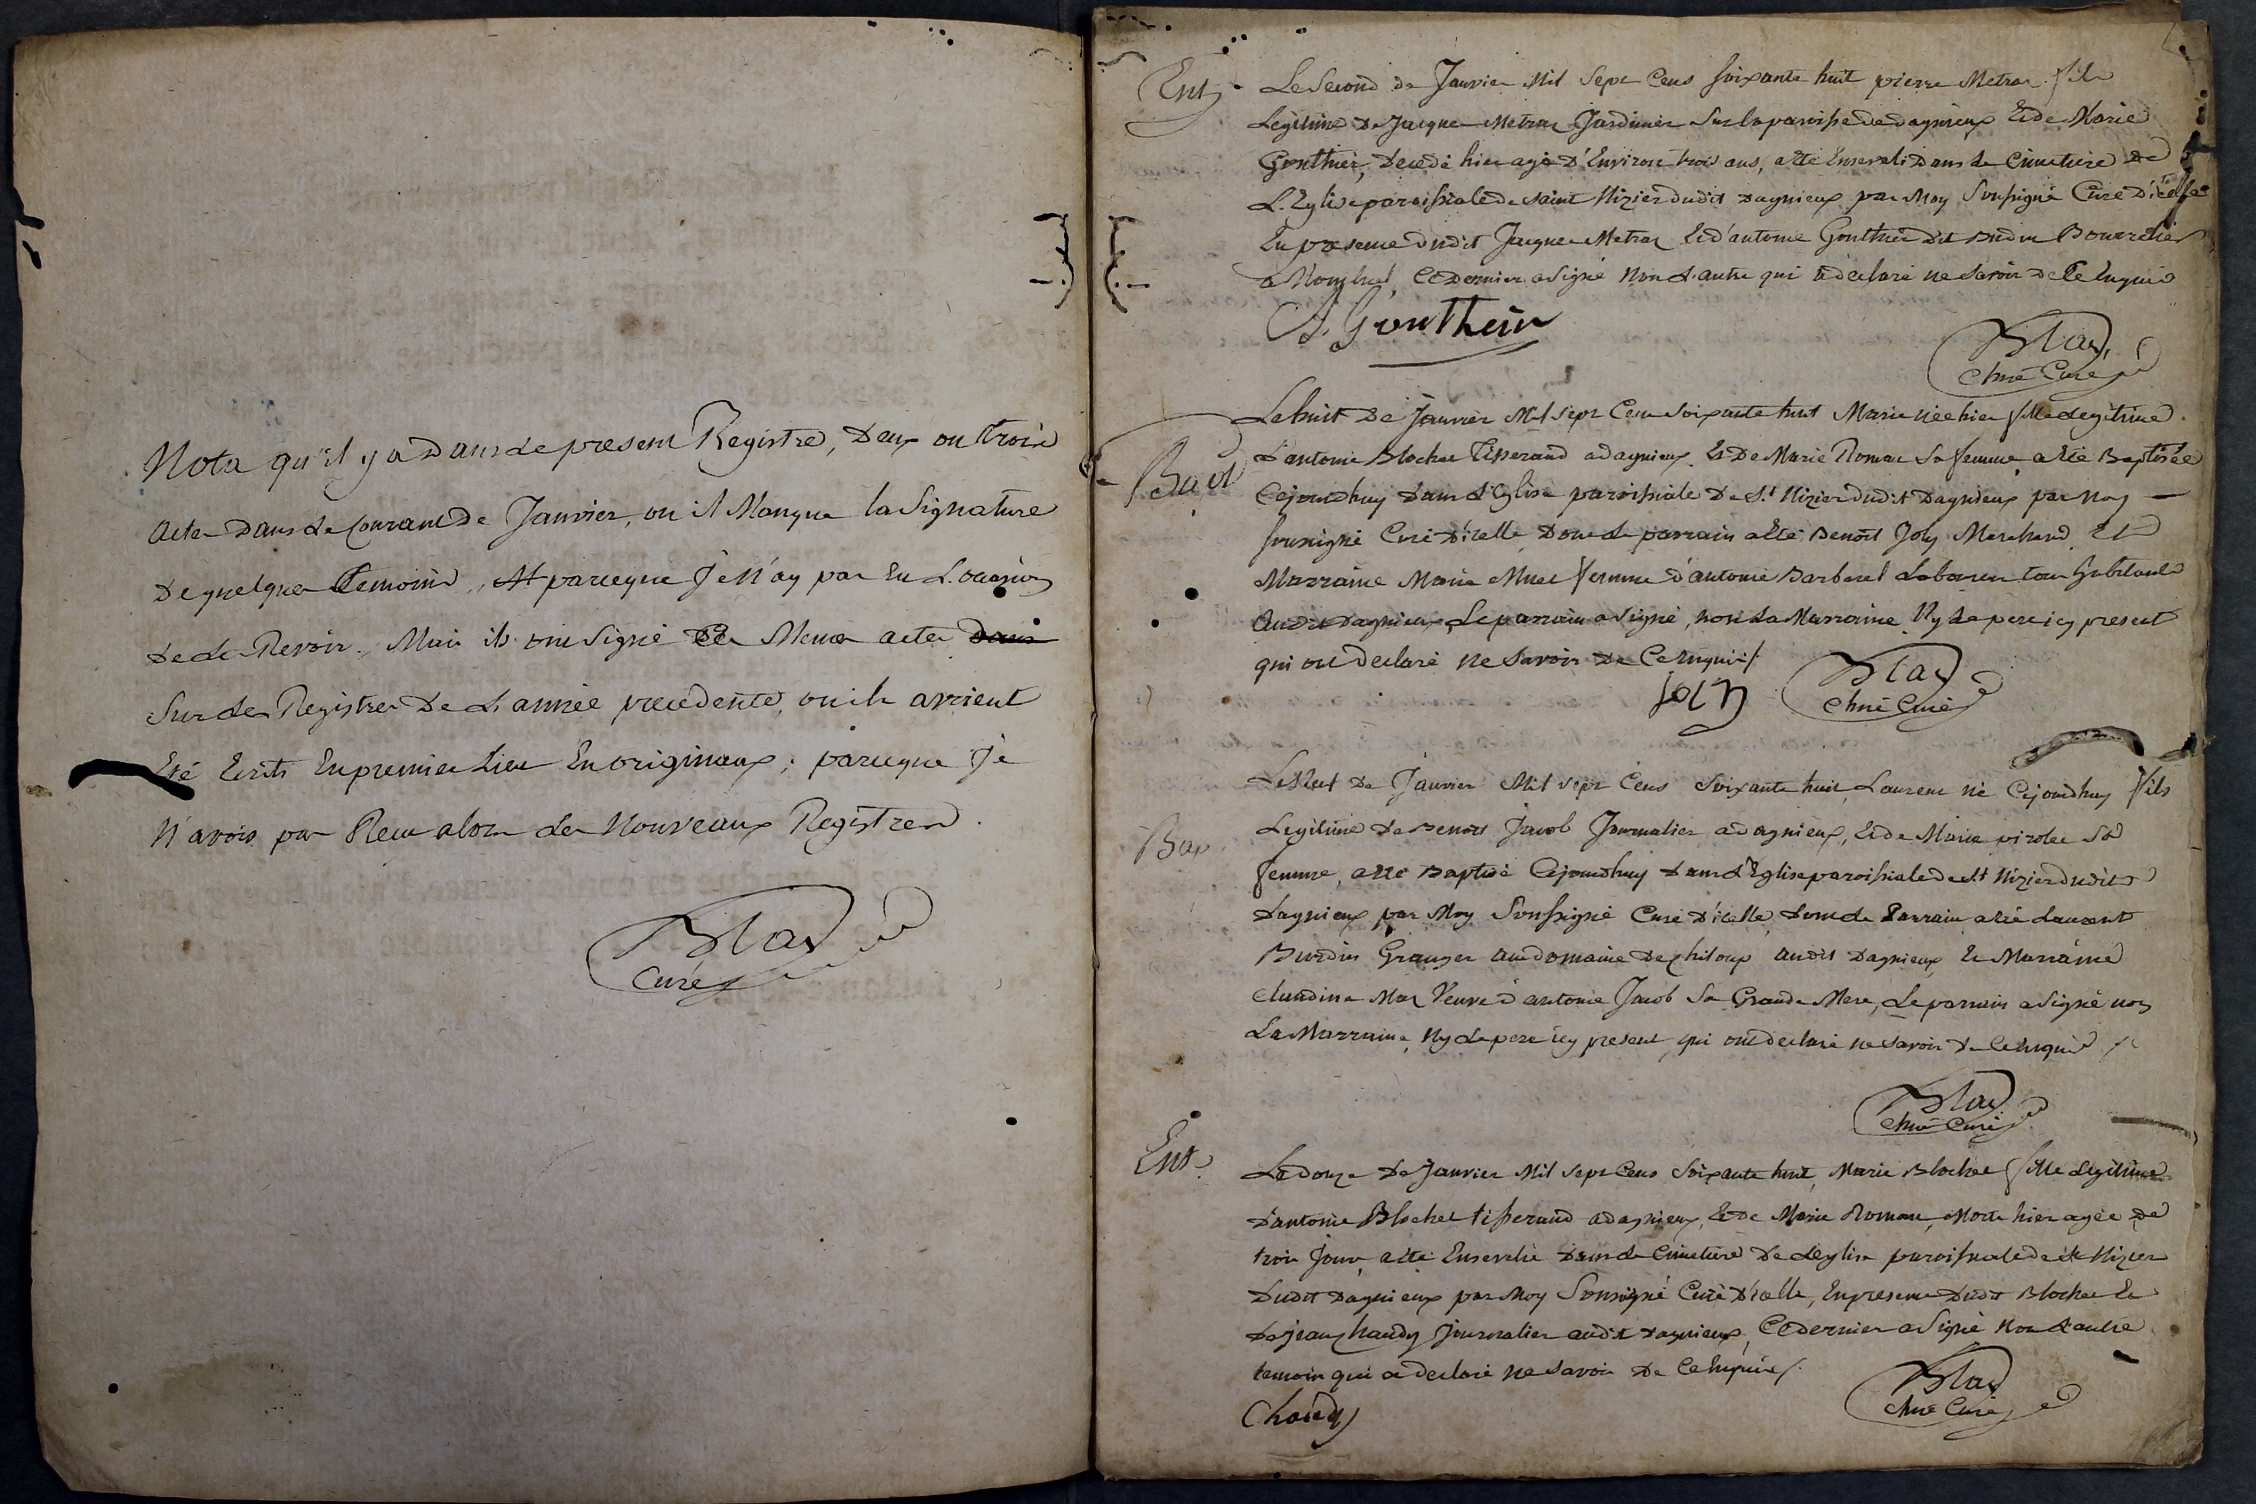 Nota qu'il y a Dans le present Registre, Deux ou trois
actes Dans le Courant De Janvier, ou il Manque la Signature
De quelques temoins, Et parceque Je N'ay pas Eu L'ocasion
De les Revoir. Mais ils ont Signé Ces Memes actes Dans
Sur les Registres De L'année precedente, ou ils avoient
Eté Ecrits En premier Lieu En originaux; parceque Je
N'avois pas Recu alors les Nouveaux Registres.
Blad
Curé
Ent
Le Second de Janvier Mil Sept Cens Soixante huit pierre Metras fils
Legitime De Jacques Metras Jardinier Sur la paroisse de dagnieux Et de Marie
Gonthier, Decedé hier agé D'Environ trois ans, a eté Enseveli Dans le Cimetiere De
L'Eglise paroissiale de saint Nizier dudit Dagnieux par Moy Soussigné Curé D'icelle
En presence dudit Jacques Metras Et d'antoine Gonthier dit Bourrelier
a Montluel, Ce Dernier a Signé Non L'autre qui a declaré ne Savoir De Ce Enquis
A. Gonthier
Blad
Curé
Le huit De Janvier Mil Sept Cens Soixante huit Marie née hier fille Legitime
D'antoine Blochet Tisserand a dagnieux Et De Marie Roman Sa femme, a eté Baptisée
Cejourdhuy Dans L'Eglise paroissiale De St Nizier dudit Dagnieux par Moy
Bapt
soussigné Curé D'icelle, Dont Le parrain a eté Benoit Joly Marchand Et
Marraine Marie femme d'antoine Barberet Laboureur tous habitants
Audit Dagnieux, Le parrain a Signé, non La Marraine Ny Le pere icy present
qui ont declaré Ne Savoir De Ce Enquis
Joly
Blad
Curé
Le Neuf De Janvier Mil Sept Cens Soixante huit, Laurent né Cejourdhuy fils
Legitime De Benoit Jacob Journalier a dagnieux, Et de Marie pirolet Sa
Bap
femme, a eté Baptisé Cejourdhuy Dans L'Eglise paroissiale de St Nizier dudit
Dagnieux par Moy Soussigné Curé D'icelle, dont Le Parrain a eté Laurent
Burdin Granger au domaine De audit Dagnieux Et Marraine
Claudine Veuve d'antoine Jacob Sa Grande Mere, Le parrain a Signé non
La Marraine, Ny Le pere icy present, qui ont declaré ne Savoir De Ce Enquis
Blad
Curé
Ent
Le douze De Janvier Mil Sept Cens Soixante huit, Marie Blochet fille Legitime
D'antoine Blochet tisserand a dagnieux, Et De Marie Roman, Morte hier agée de
trois Jours, a eté Ensevelie Dans Le Cimetiere De L'eglise paroissiale de St Nizier
Dudit Dagnieux par Moy Soussigné Curé D'icelle, En presence Dudit Blochet Et
De jean Chaudy Journalier audit Dagnieux, Ce dernier a Signé Non L'autre
temoin qui a declaré Ne Savoir De Ce Enquis
Chaudy
Blad
Curé